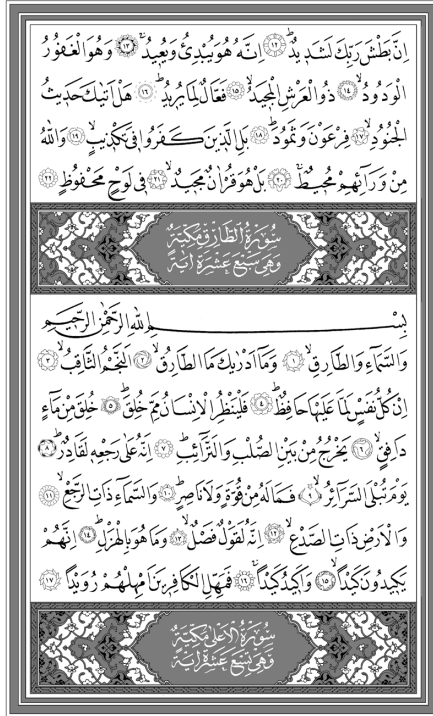 اِنَّ بَطْشَ رَبِّكَ لَشَدٖيدٌؕ ﴿١٢﴾ اِنَّهُ هُوَ يُبْدِئُ وَيُعٖيدُۚ ﴿١٣﴾ وَهُوَ الْغَفُورُ
الْوَدُودُۙ ﴿١٤﴾ ذُو الْعَرْشِ الْمَجٖيدُۙ ﴿١٥﴾ فَعَّالٌ لِمَا يُرٖيدُؕ ﴿١٦﴾ هَلْ اَتٰيكَ حَدٖيثُ
الْجُنُودِۙ ﴿١٧﴾ فِرْعَوْنَ وَثَمُودَؕ ﴿١٨﴾ بَلِ الَّذٖينَ كَفَرُوا فٖى تَكْذٖيبٍۙ ﴿١٩﴾ وَاللّٰهُ
مِنْ وَرَائِهِمْ مُحٖيطٌۚ ﴿٢٠﴾ بَلْ هُوَ قُرْاٰنٌ مَجٖيدٌۙ ﴿٢١﴾ فٖى لَوْحٍ مَحْفُوظٍ ﴿٢٢﴾
سُورَةُ الطَّارِقِ مَكِّيَّةٌ
وَهِىَ سَبْعَ عَشْرَةَ اٰيَةً
بِسْمِ اللّٰهِ الرَّحْمٰنِ الرَّحٖيمِ
وَالسَّمَاءِ وَالطَّارِقِۙ ﴿١﴾ وَمَا اَدْرٰيكَ مَا الطَّارِقُۙ ﴿٢﴾ اَلنَّجْمُ الثَّاقِبُۙ ﴿٣﴾
اِنْ كُلُّ نَفْسٍ لَمَّا عَلَيْهَا حَافِظٌؕ ﴿٤﴾ فَلْيَنْظُرِ الْاِنْسَانُ مِمَّ خُلِقَؕ ﴿٥﴾ خُلِقَ مِنْ مَاءٍ
دَافِقٍۙ ﴿٦﴾ يَخْرُجُ مِنْ بَيْنِ الصُّلْبِ وَالتَّرَائِبِؕ ﴿٧﴾ اِنَّهُ عَلٰى رَجْعِهٖ لَقَادِرٌؕ ﴿٨﴾
يَوْمَ تُبْلَى السَّرَائِرُۙ ﴿٩﴾ فَمَا لَهُ مِنْ قُوَّةٍ وَلَا نَاصِرٍؕ ﴿١٠﴾ وَالسَّمَاءِ ذَاتِ الرَّجْعِۙ ﴿١١﴾
وَالْاَرْضِ ذَاتِ الصَّدْعِۙ ﴿١٢﴾ اِنَّهُ لَقَوْلٌ فَصْلٌۙ ﴿١٣﴾ وَمَا هُوَ بِالْهَزْلِؕ ﴿١٤﴾ اِنَّهُمْ
يَكٖيدُونَ كَيْدًاۙ ﴿١٥﴾ وَاَكٖيدُ كَيْدًاۚ ﴿١٦﴾ فَمَهِّلِ الْكَافِرٖينَ اَمْهِلْهُمْ رُوَيْدًا ﴿١٧﴾
سُورَةُ الْاَعْلٰى مَكِّيَّةٌ
وَهِىَ تِسْعَ عَشْرَةَ اٰيَةً